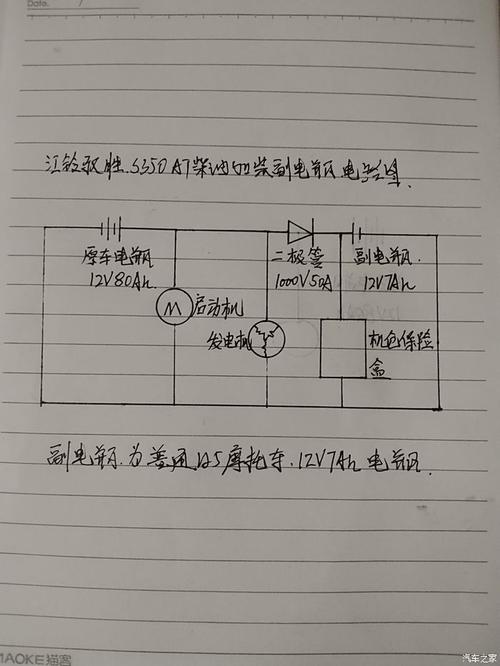 Date. /
江铃驭胜.S350 AT柴油加装副电瓶电路图.
原车电瓶
12V80Ah.
二极管
1000V50A
副电瓶.
12V7Ah
M
启动机
发电机
机仓保险
盒
副电瓶.为普通125摩托车.12V7Ah电瓶.
MAOKE猫客
汽车之家